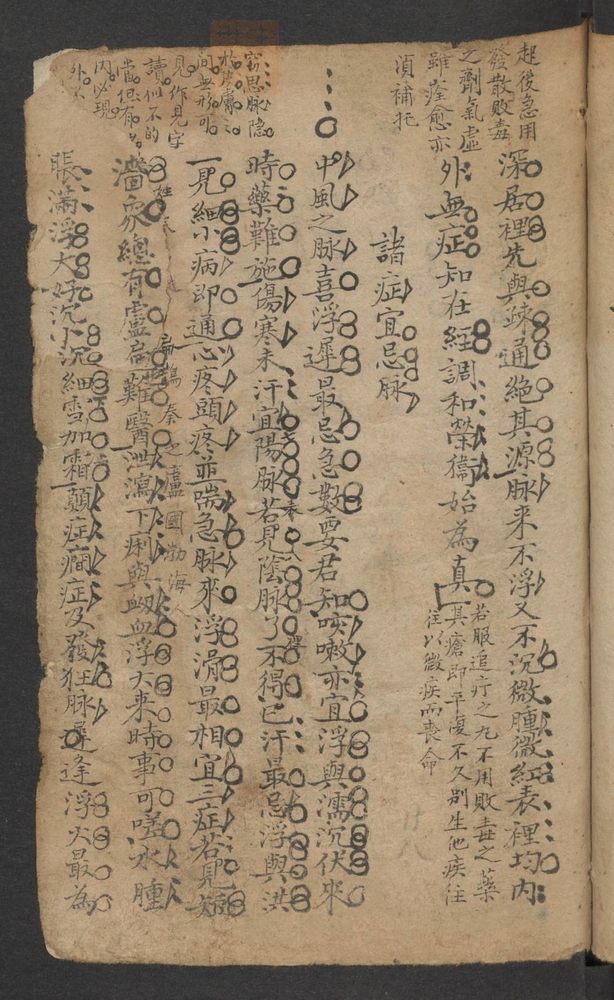 起後急用
發散敗毒
之劑氣虛
雖荃愈亦
須補托
深居裡先與疎通絕其源脉来不浮又不沉微腫微紅表裡均内
外無症知在經調和榮衛始為真
若服追疔之丸不用敗毒之藥
其瘡即平復不久别生他疾往
往以微疾而喪命
諸症宜忌脉
中風之脉喜浮遲最忌急數要君知咳嗽亦宜浮與濡沉伏来
時藥難施傷寒未汗宜陽脉若見陰脉了不得已汗最忌浮與洪
一見細小病即通心疼頭疼並喘急脉來浮滑最相宜三症若見短
濇象總有盧扁難醫泄瀉下痢與衄血浮大来時事可嗟水腫
脹滿浮大好沉小沉細雪加霜顛症癇症及發狂脉遲逢浮大最為
窃思脉隐
於皮膚
間無形可
見作見字
讀似不的
當但有
内必現
外
姓秦
扁鵲秦之盧國渤海人
廿八